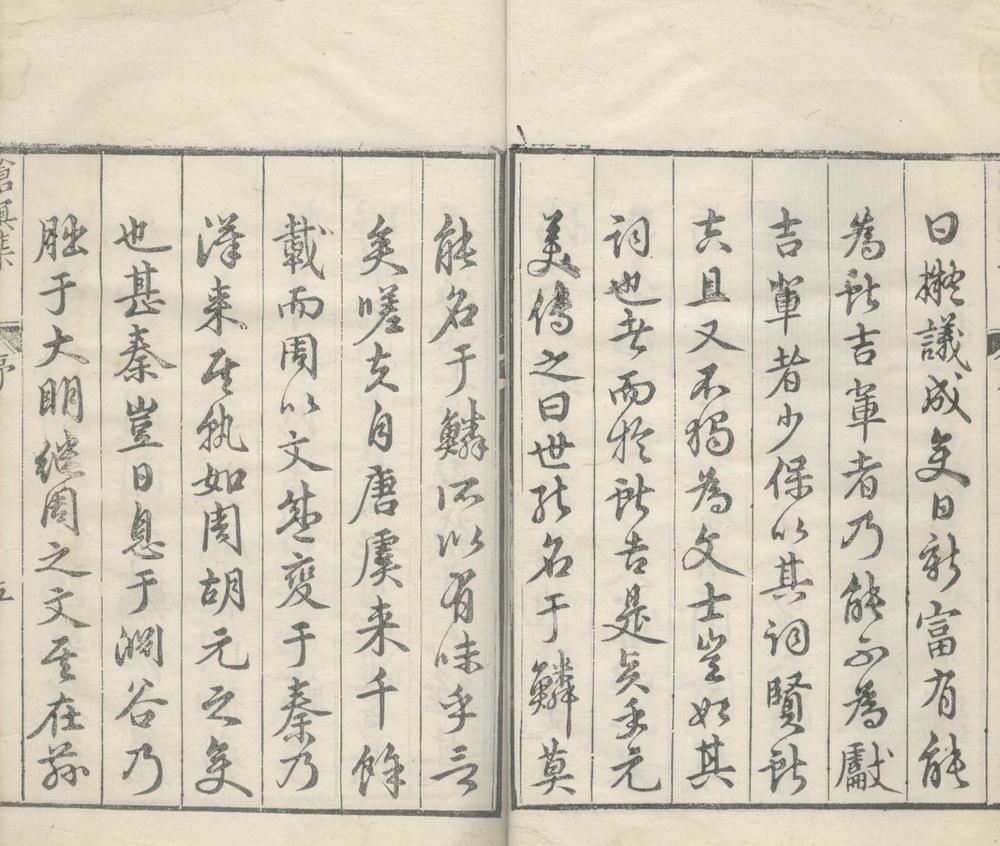 曰擬議成變日新富有能
為獻吉輩者乃能不為獻
吉輩者少保以其詞賢獻
吉且又不獨為文士豈如其
詞也者而於獻吉是矣乎元
美傳之曰世能名于鱗莫
能名于鱗所以有味乎言
矣嗟夫自唐虞來千餘
載而周以文盛變于秦乃
漢來其孰如周胡元之變
也甚秦豈日息于澗谷乃
朏于大明繼周之文其在茲
滄溟集 序 五